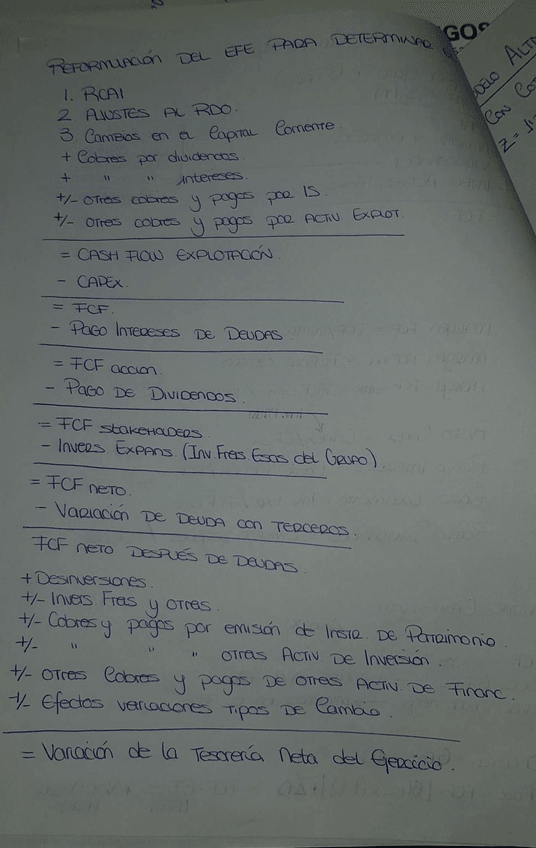 REFORMULACIÓN DEL EFE PARA DETERMINAR
1. RCAI
2 AJUSTES AL RDO.
3 Cambios en el Capital Corriente
+ Cobros por dividendos.
+ " " intereses.
+/- otros cobros y pagos por IS.
+/- otros cobros y pagos por ACTIV EXPLOT.
= CASH FLOW EXPLOTACIÓN.
- CAPEX.
= FCF.
- PAGO INTERESES DE DEUDAS
= FCF accion.
- PAGO DE DIVIDENDOS.
= FCF stakehaders.
- INVERS EXPANS (INV FRAS ESAS del GRUPO)
= FCF NETO.
- VARIACIÓN DE DEUDA CON TERCEROS.
FCF NETO DESPUÉS DE DEUDAS.
+ Desinversiones.
+/- Invers Fras y otras.
+/- Cobros y pagos por emisión de Instr. DE Patrimonio.
+/- " " " otras ACTIV DE INVERSIÓN.
+/- OTROS Cobros y pagos DE OTRAS ACTIV. DE FINANC.
+/- Efectos variaciones TIPOS DE Cambio.
= Variación de la Tesorería Neta del Ejercicio.
GOS
CON
Z =